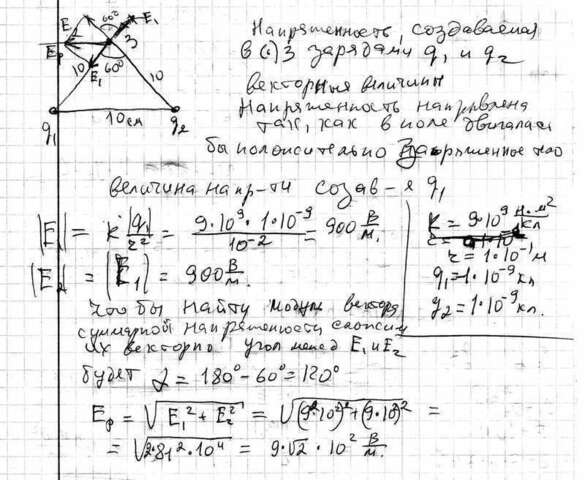 E₂ 60° E₁
Eр 3
10 E₁ 60° 10
10 см
q₁ q₂
Напряженность, создаваемая
в (·) 3 зарядами q₁ и q₂
векторные величины
Напряженность направлена
так, как в поле двигалась
бы положительно заряженное
величина напр-ти создав-я q₁
|E₁| = k|q₁|/r² = 9·10⁹·1·10⁻⁹/10⁻² = 900 В/м.
|E₂| = |E₁| = 900 В/м.
k = 9·10⁹ Н·м²/Кл
r = 1·10⁻¹ м
q₁ = 1·10⁻⁹ Кл
q₂ = 1·10⁻⁹ Кл.
Что бы найти модуль вектора
суммарной напряженности сложим
их векторно угол между E₁ и E₂
будет α = 180° – 60° = 120°
Eр = √(E₁² + E₂²) = √((9·10²)² + (9·10²)²) =
= √(2·81²·10⁴) = 9√2 · 10² В/м.